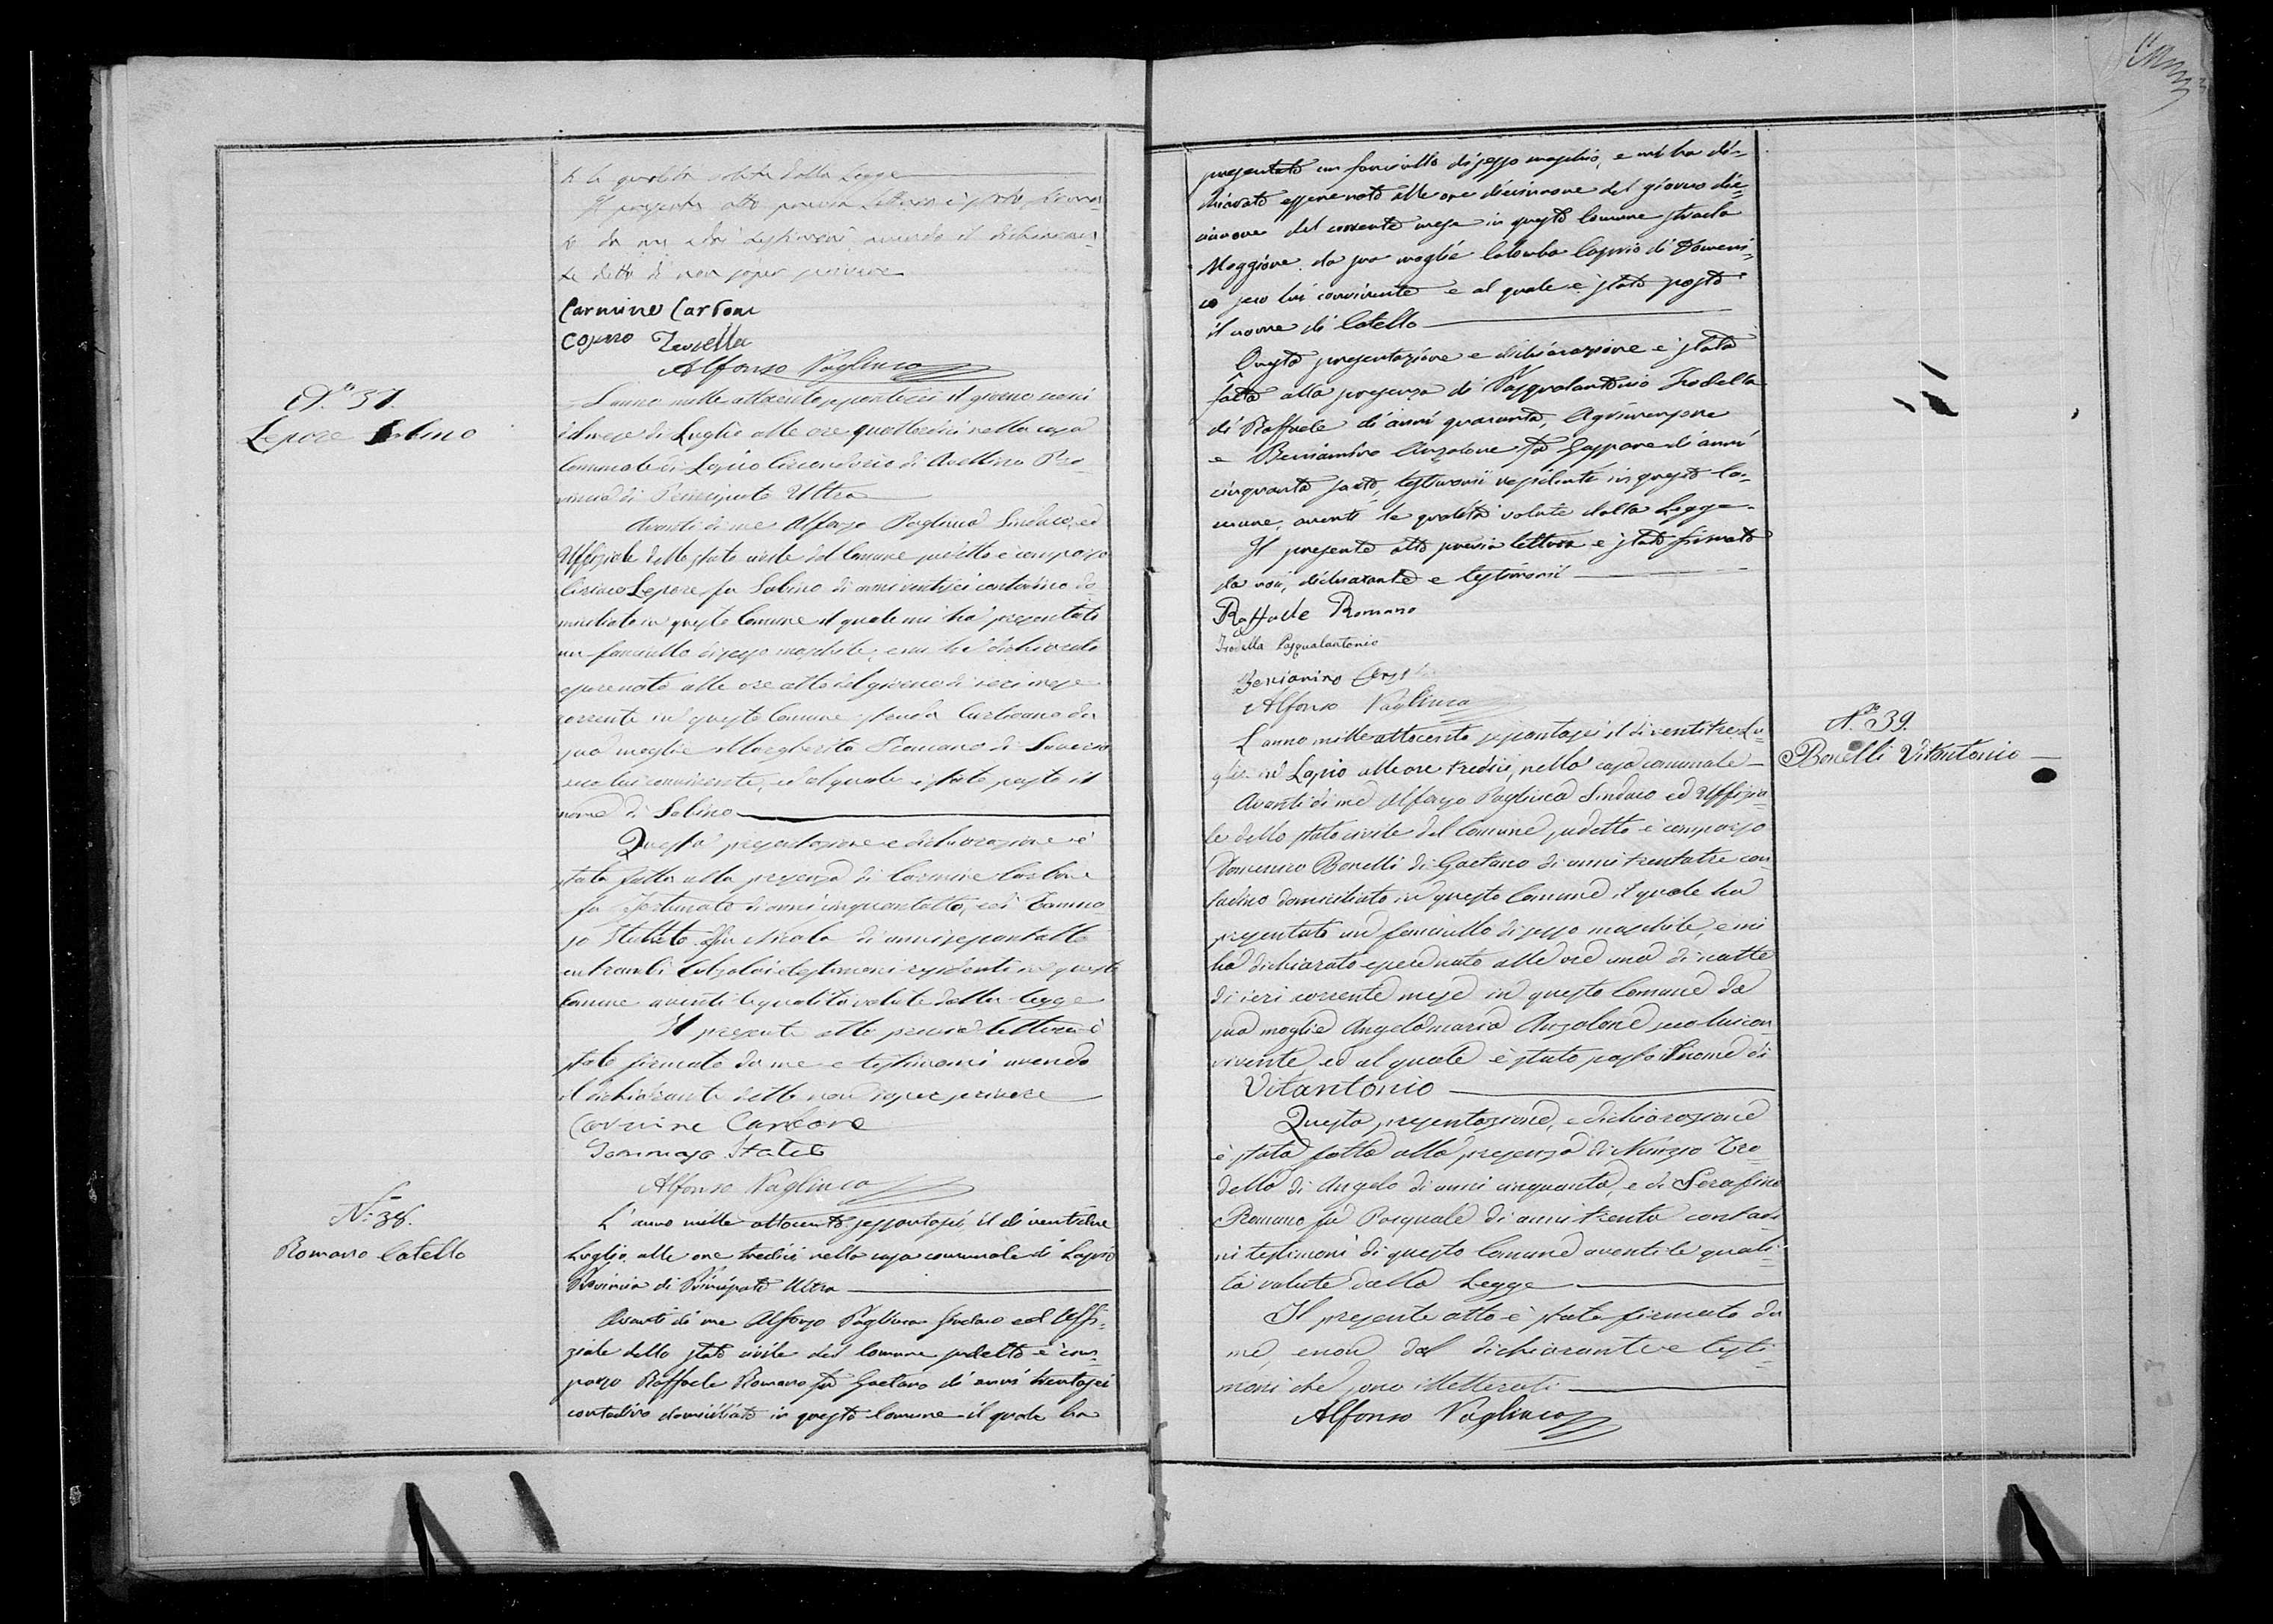 te le qualità volute dalla Legge
Il presente atto previa lettura è stato firma-
to da me e dai testimoni avendo il dichiaran-
te detto di non saper scrivere
Carmine Carbone
Alfonso Pagliuca
N.º 37.
Lepore Sabino
L'anno mille ottocento settantasei il giorno
di Luglio alle ore quattordici nella casa
Comunale di Lapio Circondario di Avellino Pro-
vincia di Principato Ultra
Avanti di me Alfonso Pagliuca Sindaco, ed
Uffiziale dello stato civile del Comune sudetto è comparso
Lepore fu Sabino di anni ventisei contadino do-
miciliato in questo Comune il quale mi ha presentato
un fanciullo di sesso maschile, e mi ha dichiarato
essere nato alle ore otto del giorno di ieri mese
corrente in questo Comune strada da
sua moglie Margherita Romano di Saverio
seco lui convivente, ed al quale è stato posto il
nome di Sabino
Questa presentazione e dichiarazione è
stata fatta alla presenza di Carmine Carbone
fu Fortunato di anni cinquantotto, e di Tomma-
so fu Nicola di anni
entrambi testimoni residenti in questo
Comune aventi le qualità volute dalla legge
Il presente atto previa lettura è
stato firmato da me e testimoni avendo
il dichiarante detto non saper scrivere
Carmine Carbone
Tommaso
Alfonso Pagliuca
N.º 38.
Romano Catello
L'anno mille ottocento settantasei, il dì ventidue
Luglio alle ore tredici nella casa comunale di Lapio
Provincia di Principato Ultra
Avanti di me Alfonso Pagliuca Sindaco ed Uffi-
ziale dello stato civile del Comune sudetto è com-
parso Raffaele Romano fu Gaetano di anni trentasei
contadino domiciliato in questo Comune il quale ha
presentato un fanciullo di sesso maschio, e mi ha di-
chiarato essere nato alle ore diecinnove del giorno die-
cinnove del corrente mese in questo Comune strada
Maggiore da sua moglie Colomba Caprio di Domeni-
co seco lui convivente e al quale è stato posto
il nome di Catello
Questa presentazione e dichiarazione è stata
fatta alla presenza di Pasqualantonio Trodella
di Raffaele di anni quaranta, Agrimensore
e Beniamino Anzalone fu Gaspare di anni
cinquanta sarto, testimonii residente in questo Co-
mune, aventi le qualità volute dalla Legge.
Il presente atto previa lettura è stato firmato
da noi, dichiarante e testimonii
Raffaele Romano
Trodella Pasqualantonio
Beniamino
Alfonso Pagliuca
N.º 39.
Bonelli Vitantonio
L'anno mille ottocento settantasei il dì ventitre Lu-
glio in Lapio alle ore tredici, nella casa comunale
Avanti di me Alfonso Pagliuca Sindaco ed Uffizia-
le dello stato civile del Comune sudetto è comparso
Domenico Bonelli di Gaetano di anni trentatre con-
tadino domiciliato in questo Comune il quale ha
presentato un fanciullo di sesso maschile, e mi
ha dichiarato essere nato alle ore una di notte
di ieri corrente mese in questo Comune da
sua moglie Angelamaria Anzalone seco lui con-
vivente, ed al quale è stato posto il nome di
Vitantonio
Questa presentazione, e dichiarazione
è stata fatta alla presenza di Nunzio Tro-
della di Angelo di anni cinquanta, e di Serafino
Romano fu Pasquale di anni trenta contadi-
ni testimoni di questo Comune aventi le quali-
tà volute dalla Legge
Il presente atto è stato firmato da
me, e non dal dichiarante e testi-
moni che sono illetterati
Alfonso Pagliuca